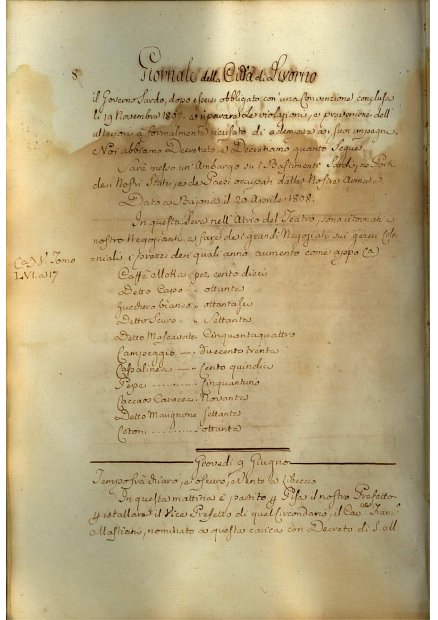 8
Giornale della Città di Livorno
il Governo Sardo, dopo essersi obbligato con una Convenzione conclusa
li 19 Novembre 1807. a riparare le violazioni, e prevenirne dell'
ulteriori à formalmente ricusato di adempire ai suoi impegni
e Noi abbiamo Decretato e Decretiamo quanto Segue
Sarà messo un'Amburgo su i Bastimenti Sardi, ne Porti
de i Nostri Stati, e de Paesi occupati dalle Nostre Armate.
Dato a Bajona il 20 Aprile 1808.
In questa Sera nell'Atrio del Teatro, sono ritornati i
nostri Negozianti a fare de i grandi Negoziati su i generi Colo=
niali i prezzi dei quali anno aumento come appo
Tomo
LVI. a 17
Caffè per cento dieci
Detto Capo ottanta
Zucchero bianco ottantasei
Detto Scuro Settanta
Detto Mascavato Cinquantaquattro
Campeggio Duecento trenta
Cento quindici
Pepe Cinquantuno
Caccaos Caracca Novanta
Detto Maragnone Settanta
Cotoni ottanta
Giovedì 9 Giugno
Tempo frà chiaro, e oscuro, e Vento a libeccio
In questa mattina è partito p Pisa il nostro Prefetto
p istallare il Vice Prefetto di quel Circondario, il Cav. Franc.
Mastiani, nominato a questa carica con Decreto di S. M